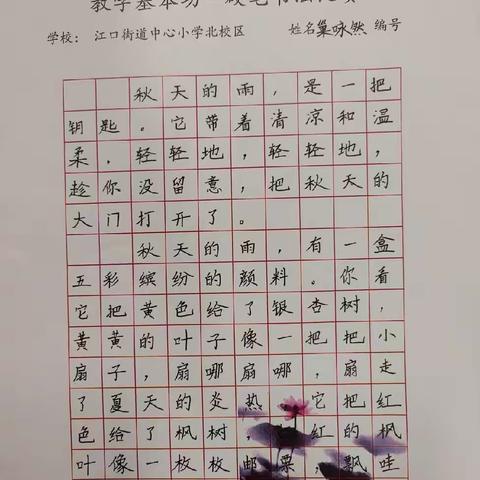 教学基本功
学校： 江口街道中心小学北校区 姓名巢咏然 编号
秋天的雨，是一把
钥匙。它带着清凉和温
柔，轻轻地，轻轻地，
趁你没留意，把秋天的
大门打开了。
秋天的雨，有一盒
五彩缤纷的颜料。你看
它把黄色给了银杏树，
黄黄的叶子像一把把小
扇子，扇哪扇哪，扇走
了夏天的炎热。它把红
色给了枫树，红的枫
叶像一枚枚邮票，飘哇